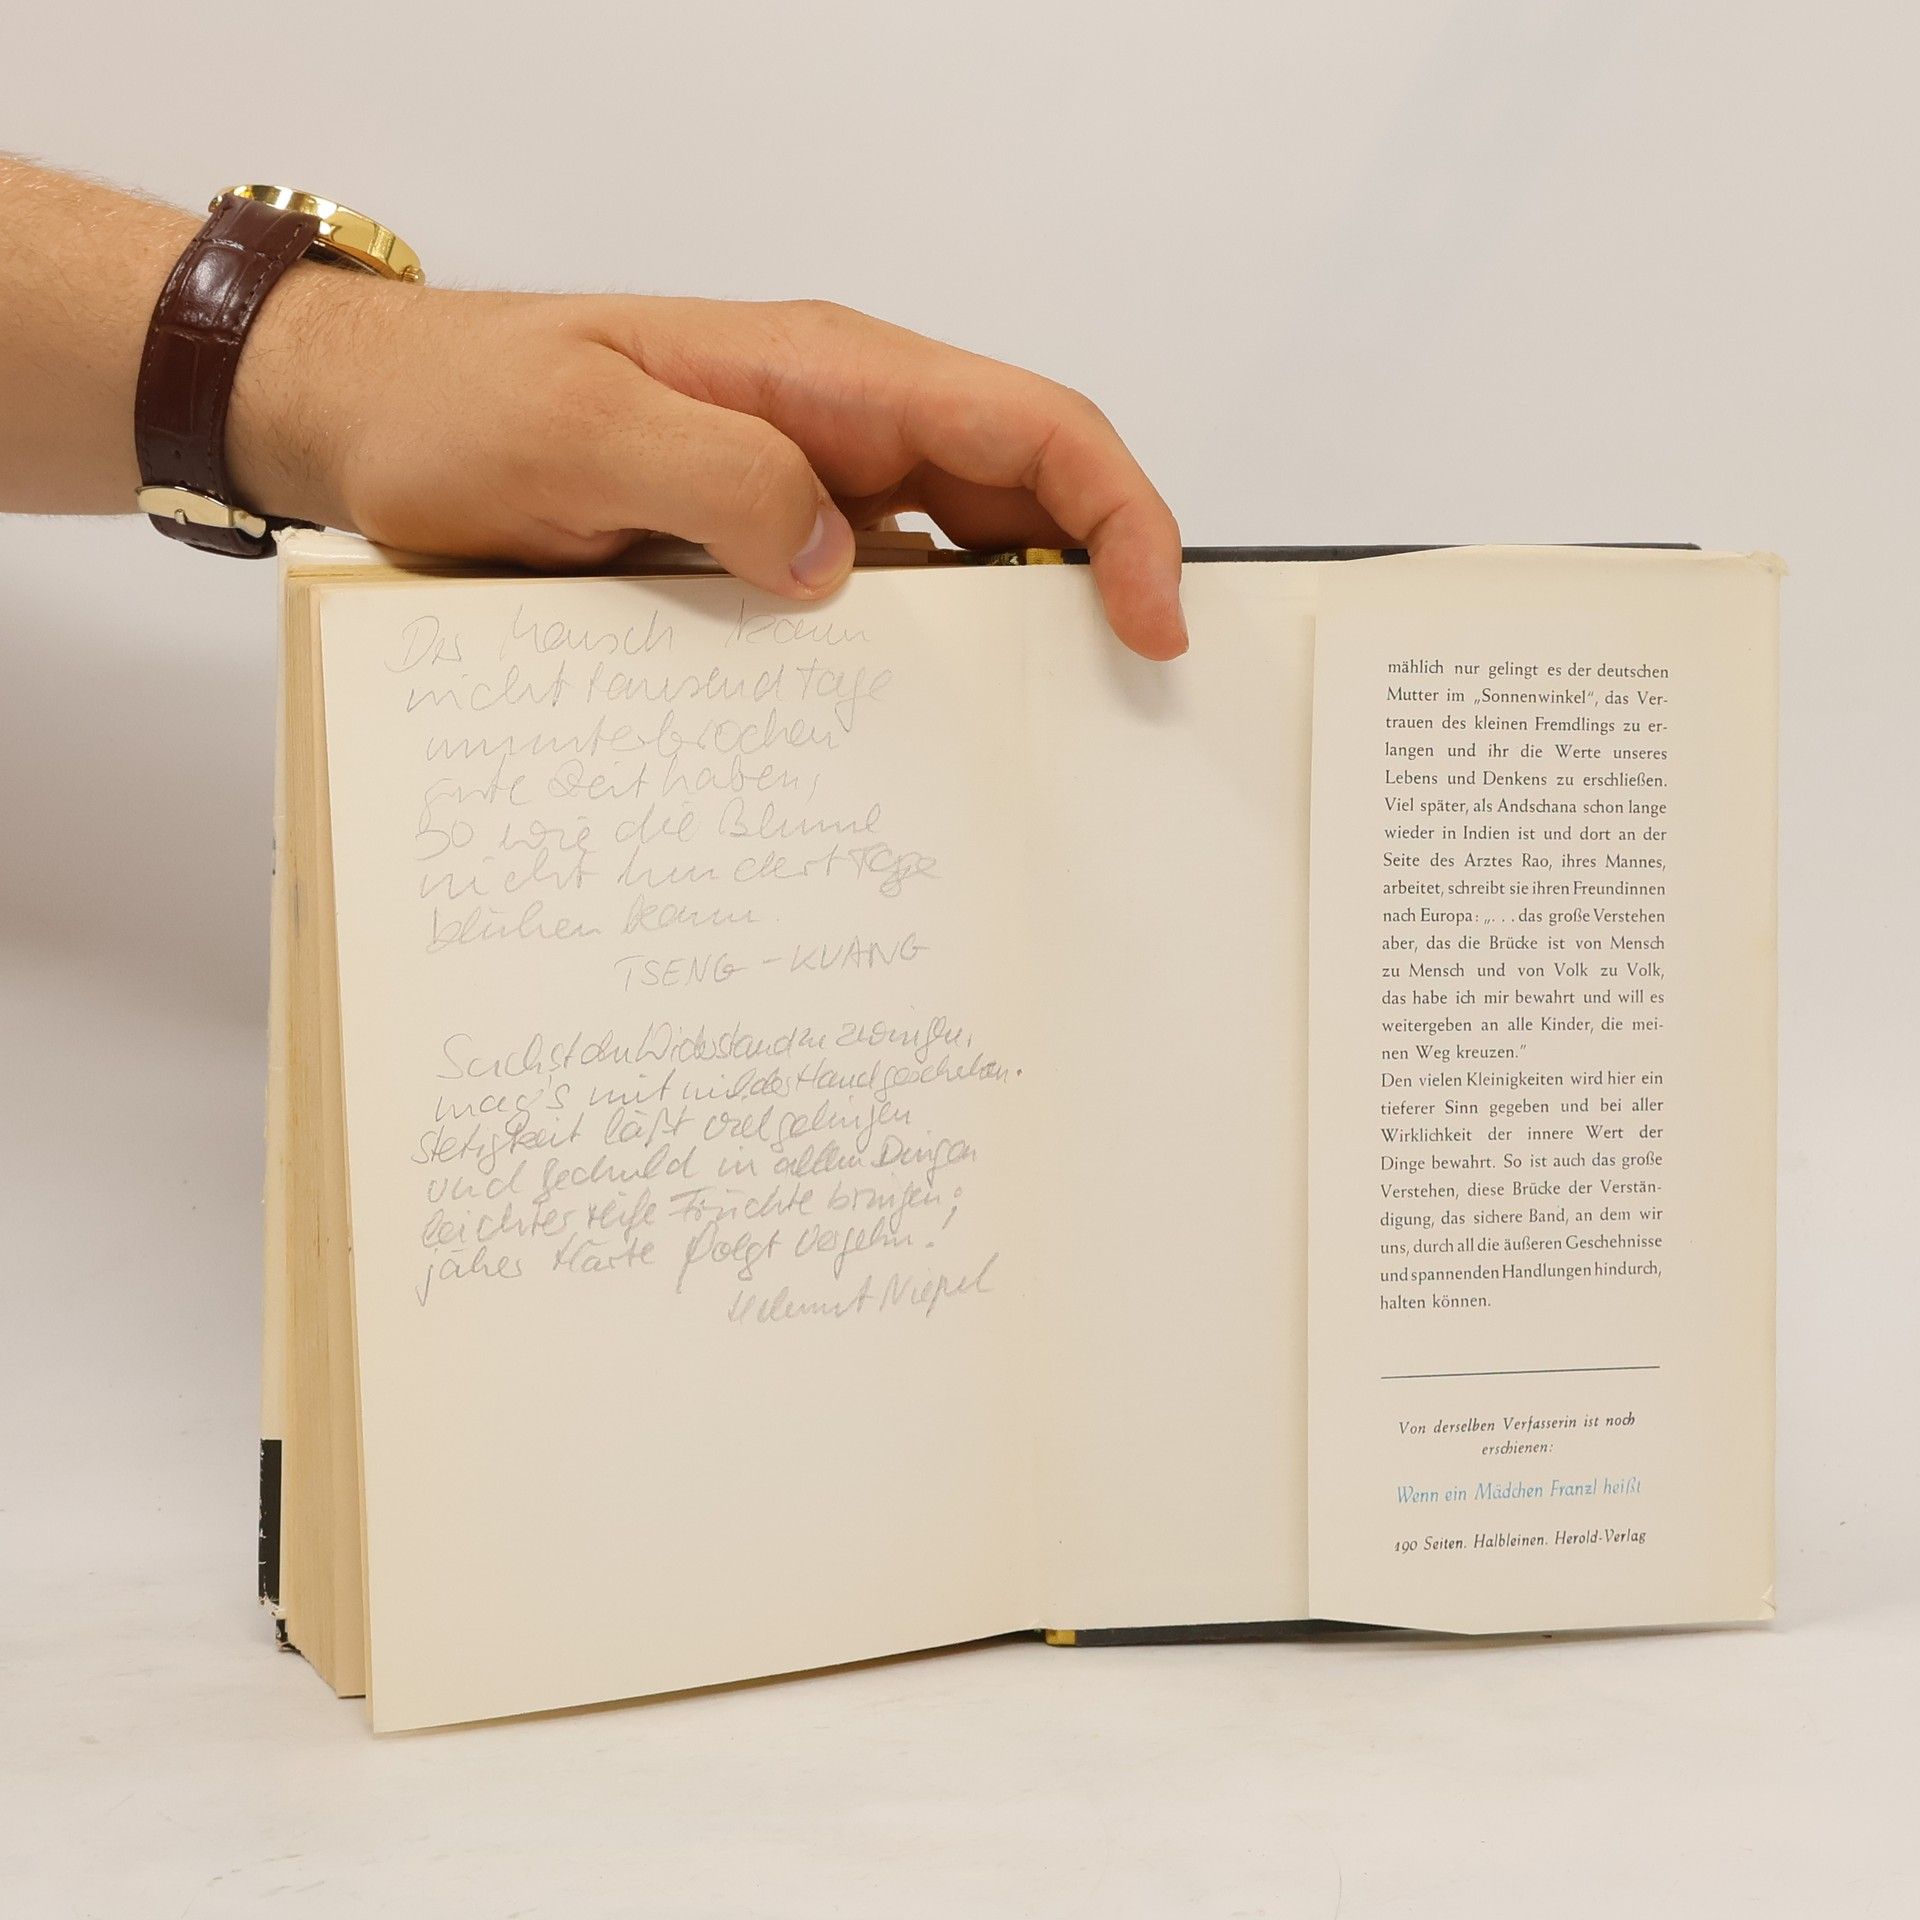 Der Mensch kann
nicht tausend Tage
ununterbrochen
gute Zeit haben,
so wie die Blume
nicht hundert Tage
blühen kann.
TSENG - KUANG
Suchst du Widerstand zu zwingen,
mag's mit milder Hand geschehen.
Stetigkeit läßt viel gelingen
und Geduld in allen Dingen
leichter reife Früchte bringen;
jäher Härte folgt Vergehn!
Helmut
mählich nur gelingt es der deutschen
Mutter im „Sonnenwinkel“, das Ver-
trauen des kleinen Fremdlings zu er-
langen und ihr die Werte unseres
Lebens und Denkens zu erschließen.
Viel später, als Andschana schon lange
wieder in Indien ist und dort an der
Seite des Arztes Rao, ihres Mannes,
arbeitet, schreibt sie ihren Freundinnen
nach Europa: „. . . das große Verstehen
aber, das die Brücke ist von Mensch
zu Mensch und von Volk zu Volk,
das habe ich mir bewahrt und will es
weitergeben an alle Kinder, die mei-
nen Weg kreuzen.“
Den vielen Kleinigkeiten wird hier ein
tieferer Sinn gegeben und bei aller
Wirklichkeit der innere Wert der
Dinge bewahrt. So ist auch das große
Verstehen, diese Brücke der Verstän-
digung, das sichere Band, an dem wir
uns, durch all die äußeren Geschehnisse
und spannenden Handlungen hindurch,
halten können.
Von derselben Verfasserin ist noch
erschienen:
Wenn ein Mädchen Franzl heißt
190 Seiten. Halbleinen. Herold-Verlag